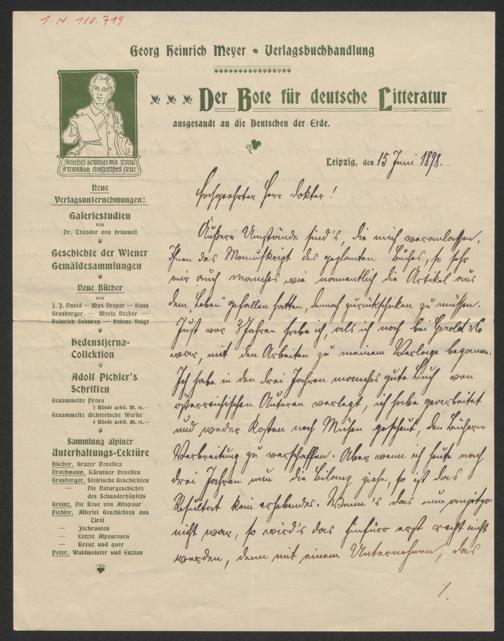 I. N. 188.719
Georg Heinrich Meyer Verlagsbuchhandlung
Der Bote für deutsche Litteratur
ausgesandt an die Deutschen der Erde.
Leipzig, den 15 Juni 1898.
Neue
Verlagsunternehmungen:
Galeriestudien
von
Dr. Theodor von Frimmel
Geschichte der Wiener
Gemäldesammlungen
Neue Bücher
von
J. J. David — Max Dreyer — Hans
Grasberger — Moriz Necker —
Heinrich Sohnrey — Helene Voigt
Hedenstjerna-
Collektion
Adolf Pichler's
Schriften
Gesammelte Prosa
Gesammelte dichterische Werke
Sammlung alpiner
Unterhaltungs-Lektüre
Fischer, Grazer Novellen
Drachmann, Kärntner Novellen
Grasberger, Steirische Geschichten
— Die Naturgeschichte
des Schnaderhüpfels
Greinz, Die Rose von Altspaur
Pichler, Allerlei Geschichten aus
Tirol
— Jochrauten
— Letzte Alpenrosen
— Kreuz und quer
Peter, Waldmeister und Enzian
Hochgeehrter Herr Doktor!
Äußere Umstände sind's, die mich veranlassen,
Ihnen das Manuskript des geplanten Buches, so sehr
mir auch manches wie namentlich die Artikel aus
dem Leben gefallen hatten, danach zurückschicken zu müssen.
Just vor 3 Jahren habe ich, als ich noch bei
war, mit den Arbeiten zu meinem Verlage begonnen.
Ich habe in den drei Jahren manches gute Buch von
österreichischen Autoren verlegt, ich habe gearbeitet
und weder Kosten noch Mühen gescheut, den Büchern
Verbreitung zu verschaffen. Aber wenn ich heute nach
drei Jahren nun die Bilanz ziehe, so ist das
Resultat kein erhebendes. Wenn's das nun
nicht war, so wird's das hinfüro erst recht nicht
werden, denn mit einem Unternehmen, das